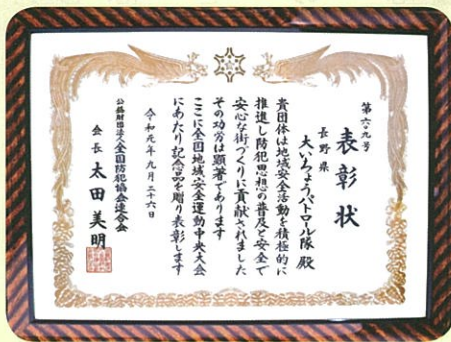 第六〇九号
表彰状
長野県
大いちょうパトロール隊 殿
貴団体は地域安全活動を積極的に
推進し防犯思想の普及と安全で
安心な街づくりに貢献されました
その功労は顕著であります
ここに全国地域安全運動中央大会
にあたり記念品を贈り表彰します
令和元年九月二十六日
公益財団法人全国防犯協会連合会
会長 太田美明